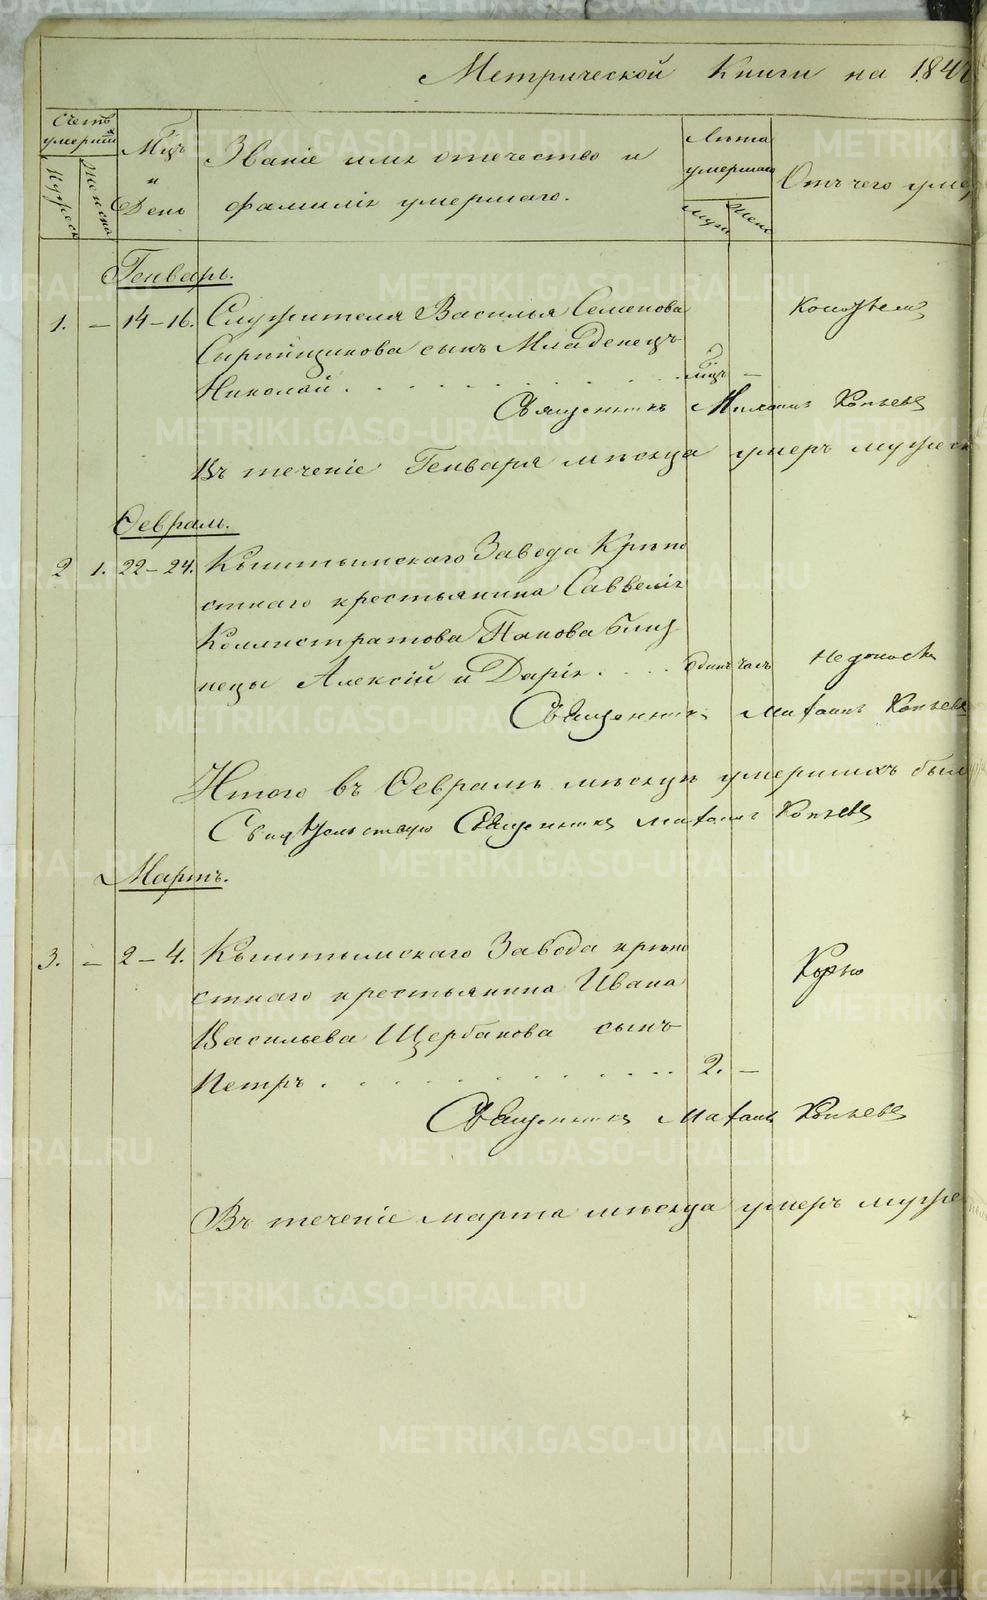 Метрической Книги на 184
Счетъ умершихъ
Мужеск
Женска
Мцъ и День
Званіе имя отечество и
фамилія умершаго.
Лѣта умершаго
Муж
Жен
Отъ чего умер
Генварь.
1. – 14–16. Служителя Василья Семенова
сынъ Младенецъ
Николай . . . мцъ –
Священникъ Михаилъ Копьевъ
Въ теченіе Генваря мѣсяца умеръ мужеск
Февраль.
2 1. 22–24. Кыштымскаго Завода Крѣпо
стнаго крестьянина Савелія
Каллистратова Панова близ
нецы Алексій и Дарія . . . одинъ часъ недоноски
Священникъ Михаилъ Копьевъ
Итого въ Февралѣ мѣсяцѣ умершихъ было
Свидѣтельствую Священникъ Михаилъ Копьевъ
Мартъ.
3. – 2–4. Кыштымскаго Завода крѣпо
стнаго крестьянина Ивана Корью
Васильева Щербакова сынъ
Петръ . . . 2. –
Священникъ Михаилъ Копьевъ
Въ теченіе марта мѣсяца умеръ мужс
METRIKI.GASO-URAL.RU